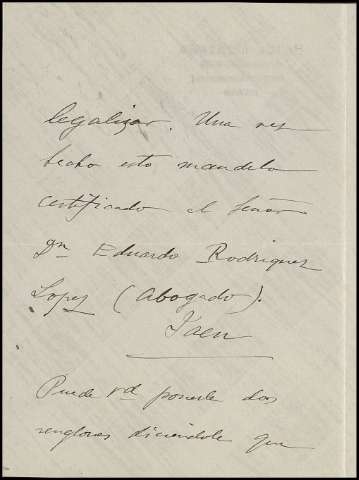 legalizar. Una vez
hecho esto mandelo
certificado al Señor
Dn Eduardo Rodriguez
Lopez (Abogado).
Jaen
Puede Vd ponerle dos
renglones diciendole que